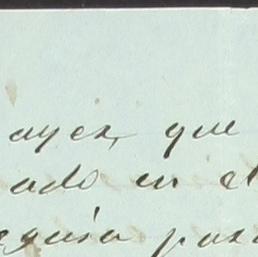 ayer, que
ado en el
eguia para